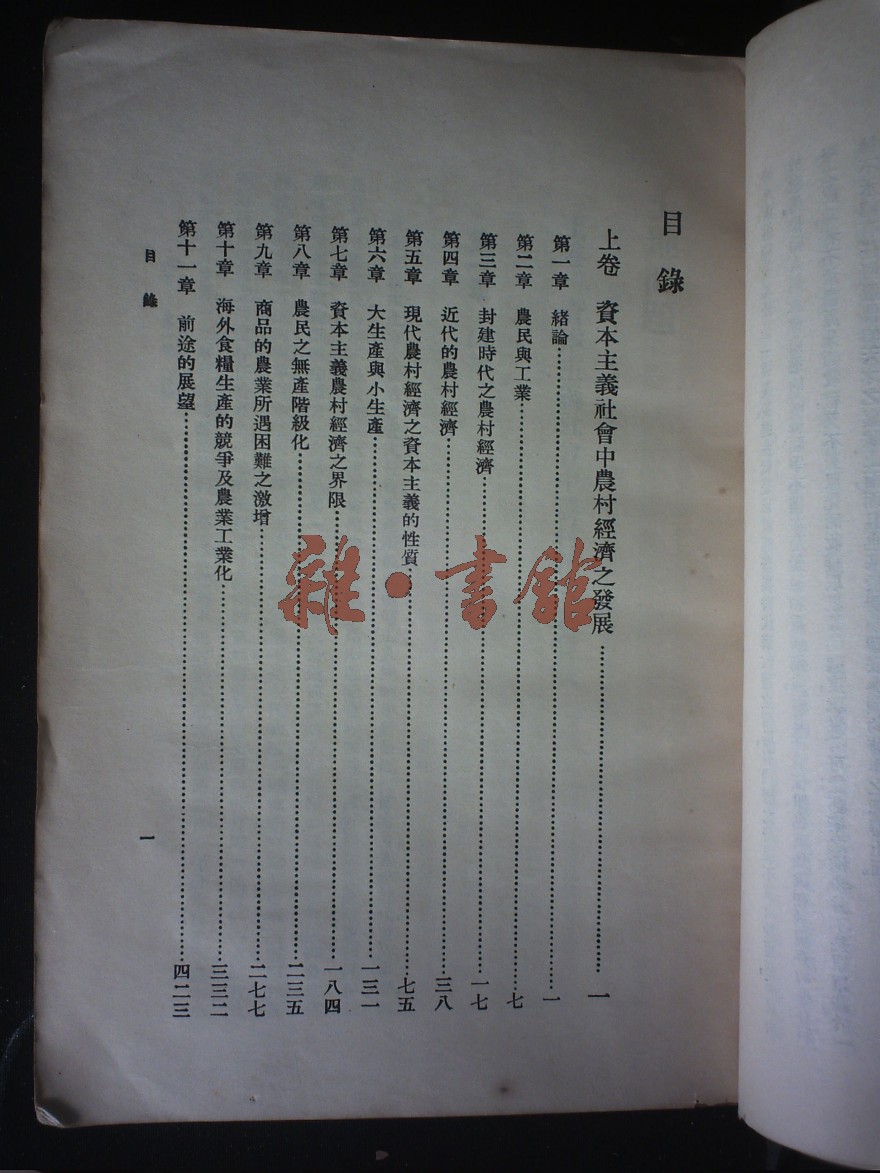 目錄
上卷 資本主義社會中農村經濟之發展………一
第一章 緒論………一
第二章 農民與工業………七
第三章 封建時代之農村經濟………一七
第四章 近代的農村經濟………三八
第五章 現代農村經濟之資本主義的性質………七五
第六章 大生產與小生產………一三一
第七章 資本主義農村經濟之界限………一八四
第八章 農民之無產階級化………二三五
第九章 商品的農業所遇困難之激增………二七七
第十章 海外食糧生產的競爭及農業工業化………三三二
第十一章 前途的展望………四二三
目錄 一
雜·書館